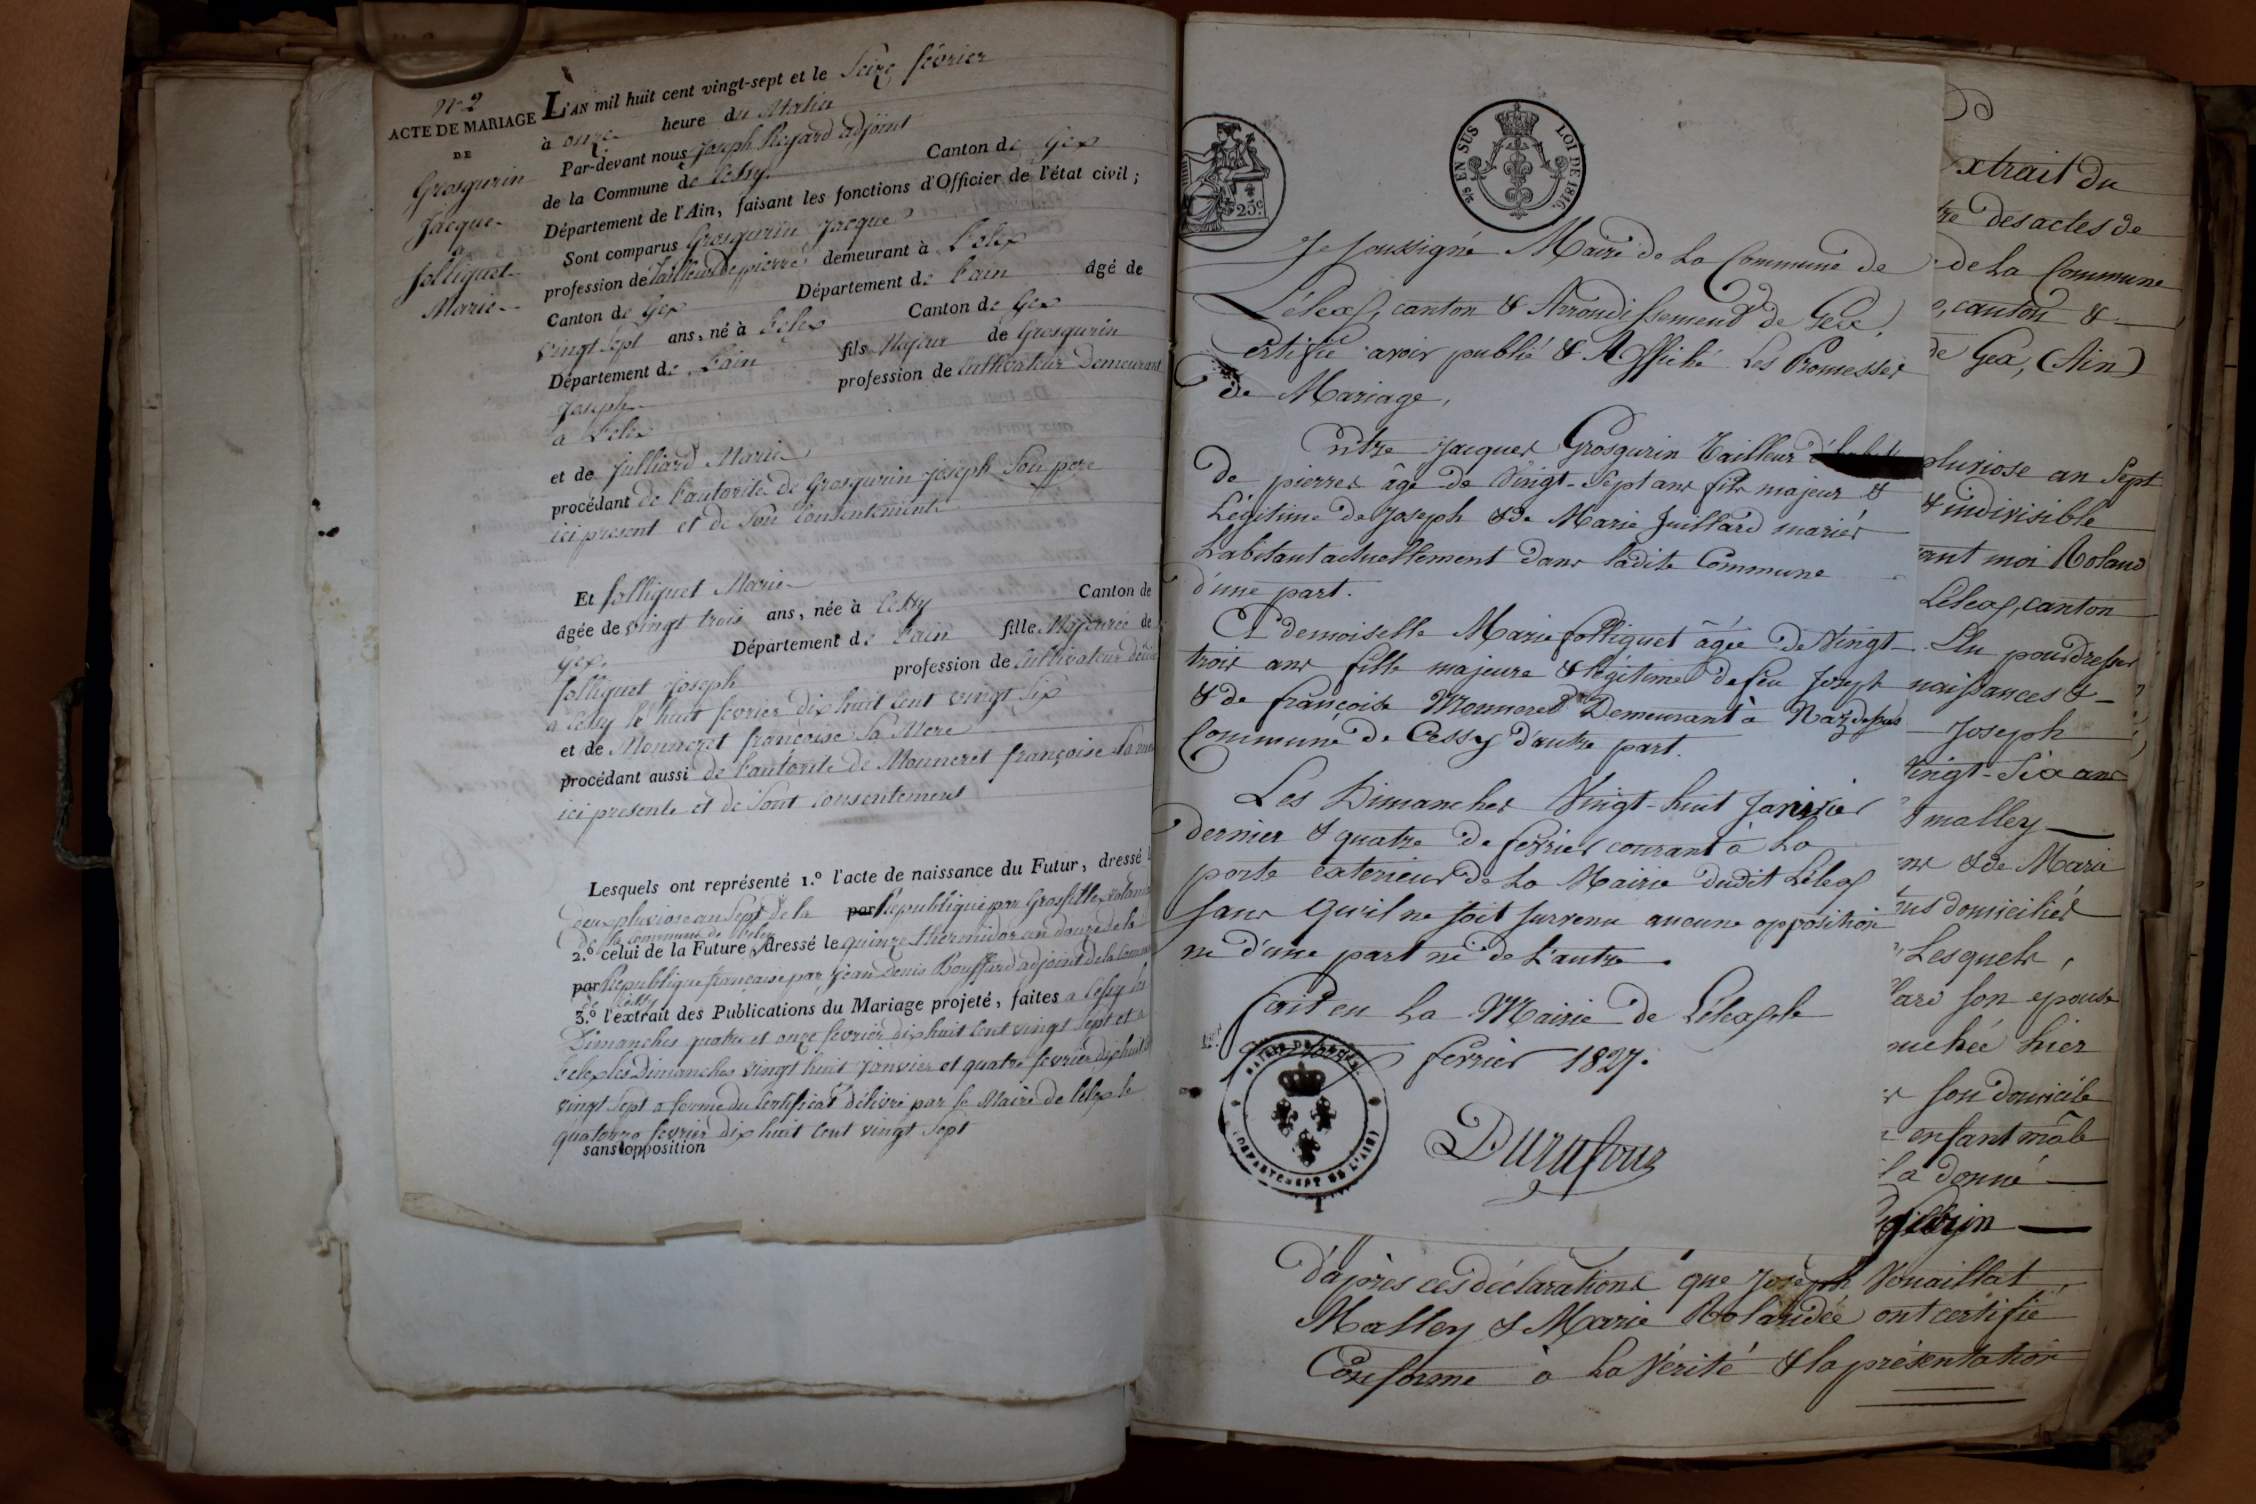 N° 2
ACTE DE MARIAGE
DE
Grosgurin
Jacque
a
Jolliquet
Marie
L'AN mil huit cent vingt-sept et le Seize février
à onze heure du Matin
Par-devant nous Joseph Regard adjoint
de la Commune de Cessy Canton de Gex
Département de l'Ain, faisant les fonctions d'Officier de l'état civil;
Sont comparus Grosgurin Jacque
profession de Tailleur de pierre demeurant à Lelex
Canton de Gex Département de L'ain âgé de
vingt sept ans, né à Lelex Canton de Gex
Département de L'ain fils Majeur de Grosgurin
Joseph profession de Cultivateur Demeurant
a Lelex
et de Julliard Marie
procédant de L'autorité de Grosgurin Joseph Son pere
ici present et de Son Consentement
Et Jolliquet Marie
âgée de vingt trois ans, née à Cessy Canton de
Gex Département de L'ain fille Majeure de
Jolliquet Joseph profession de Cultivateur
a Cessy le huit fevrier dix huit Cent vingt Six
et de Monneret françoise Sa Mere
procédant aussi de L'autorité de Monneret françoise Sa
ici presente et de Sont Consentement
Lesquels ont représenté 1.° l'acte de naissance du Futur, dressé
deux pluviose an Sept de la par Republique par
de la Commune de Lelex
2.° celui de la Future, dressé le quinze thermidor an douze de la
par Republique française par Jean Denis Bouffard adjoint de la
de Cessy
3.° l'extrait des Publications du Mariage projeté, faites a Cessy les
Dimanches quatre et onze fevrier dix huit Cent vingt Sept et a
Lelex les Dimanches vingt huit Janvier et quatre fevrier dix huit
vingt Sept a forme du Certificat délivré par le Maire de Lelex le
quatorze fevrier dix huit Cent vingt Sept
sans opposition
25 c.
2/5 EN SUS LOI DE 1816.
Je Soussigné Maire de La Commune de
Léleax, canton & Arrondissement de Gex,
Certifie avoir publié & Affiché Les Promesses
de Mariage,
Entre Jacques Grosgurin Tailleur
de pierres âgé de Vingt-Sept ans fils majeur &
Légitime de Joseph & de Marie Juillard mariés
habitant actuellement dans ladite Commune
d'une part.
Et demoiselle Marie Jolliquet âgée de Vingt-
trois ans fille majeure & légitime de feu Joseph
& de françoise Monneret Demeurant à Naz dessus
Commune de Cessy d'autre part.
Les Dimanches Vingt-huit Janvier
dernier & quatre de fevrier courant à La
porte exterieur de La Mairie dudit Léleax
sans qu'il ne soit survenu aucune opposition
ni d'une part ni de L'autre.
Fait en La Mairie de Léleax le
fevrier 1827.
DEPARTEMENT DE L'AIN
Durafour
xtrait du
tre des actes de
de La Commune
, canton &
de Gex, (Ain)
pluviose an Sept
& indivisible
ant moi Roland
Léleax, canton
Elu pour dresser
naissances &
Joseph
Vingt-Six ans
malley
ans & de Marie
tus domiciliés
Lesquels,
laré son epouse
ouchée hier
son domicile
enfant mâle
la donné
D'après ces déclarations que Joseph Vuaillat,
Malley & Marie Rolandée ont certifié
Conforme à La Vérité & la présentation